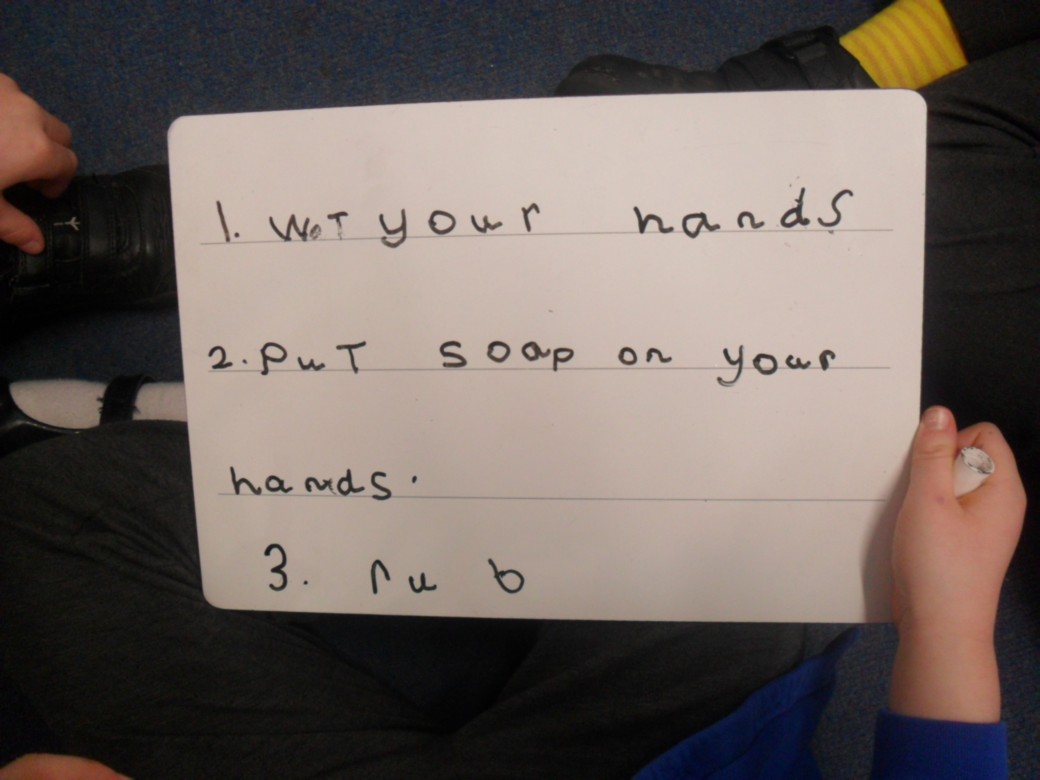 1. WoT your hands
2. PuT soap on your
hands.
3. rub